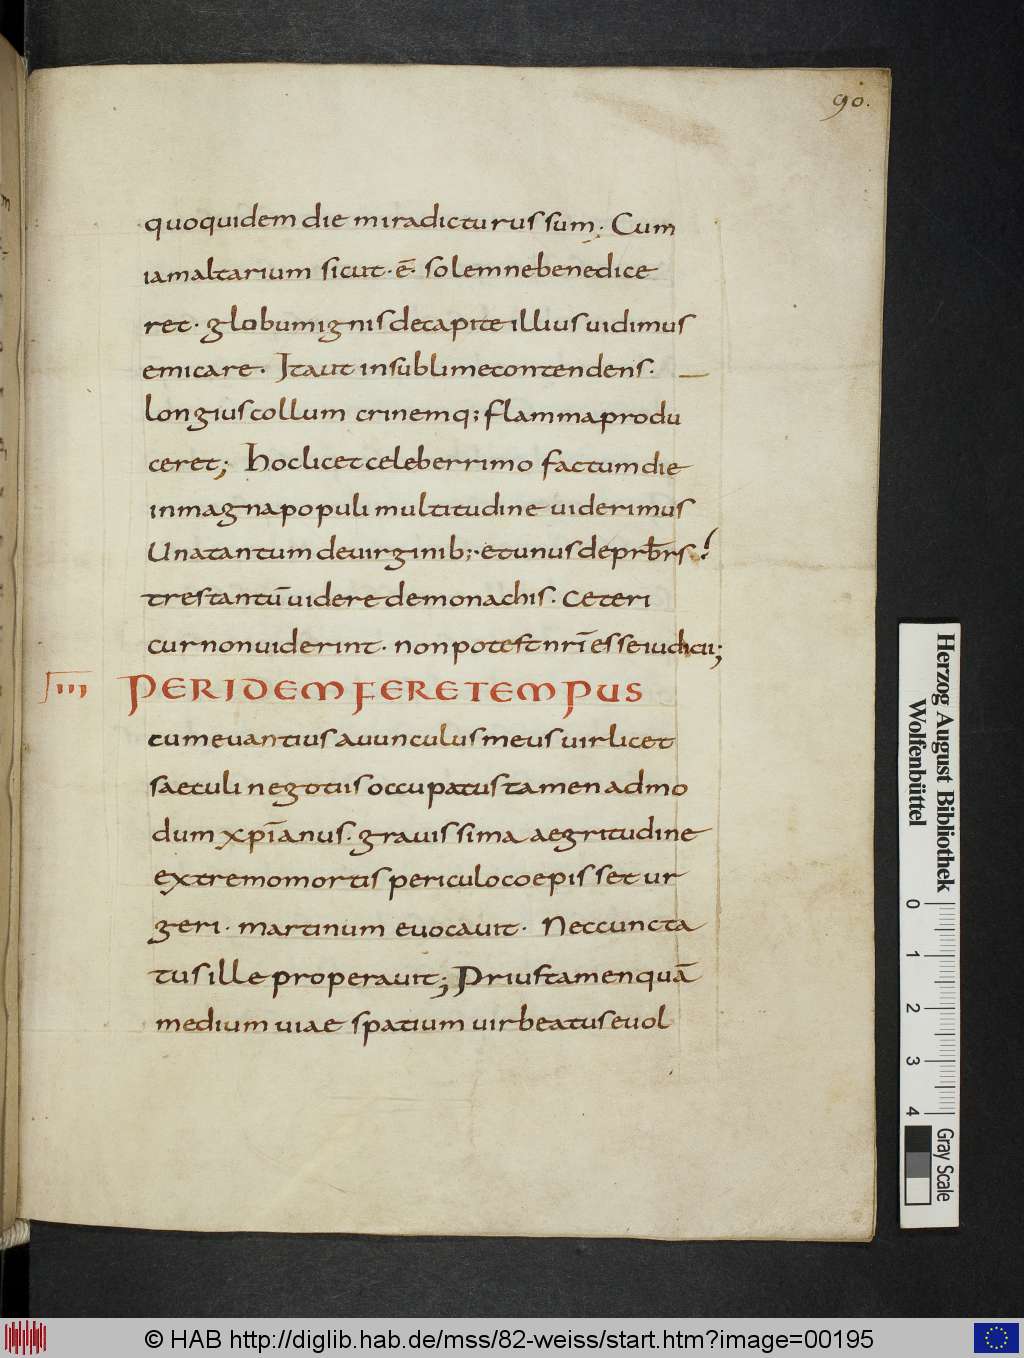 90.
quoquidem die miradicturus sum; Cum
iamaltarium sicut · ē · solemnebenedice
ret · globumignisdecapite illius uidimus
emicare · Itaut insublimecontendens · —
longiuscollum crinemq; flammaprodu
ceret; hoclicetceleberrimo factumdie
inmagnapopuli multitudine uiderimus
Unatantumdeuirginib; · etunusdeprb̄rs ·
trestantū uidere demonachis · Ceteri
curnonuiderint · nonpotest nr̄i esseiudicii;
III PERIDEM FERETEMPUS
cumeuantius auunculusmeus uirlicet
saeculi negotiis occupatus tamen admo
dum xp̄ianus · grauissima aegritudine
extremomortis periculocoepisset ur
geri · martinum euocauit · Neccuncta
tusille properauit; Priustamenquā
medium uiae spatium uirbeatuseuol
Herzog August Bibliothek
Wolfenbüttel
0 1 2 3 4
Gray Scale
© HAB http://diglib.hab.de/mss/82-weiss/start.htm?image=00195